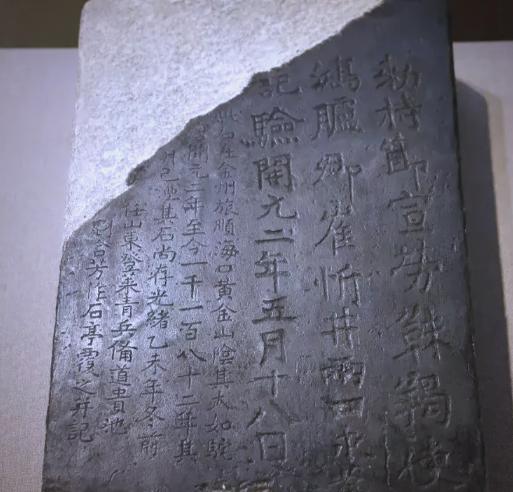 勅持節宣勞靺羯使
鴻臚卿崔忻井兩口永爲
記驗開元二年五月十八日
此石在金州旅順海口黃金山陰其大如駝
唐開元二年至今一千一百八十二年其
井已湮其石尚存光緒乙未年冬前
任山東登萊青兵備道貴池
劉含芳作石亭覆之并記